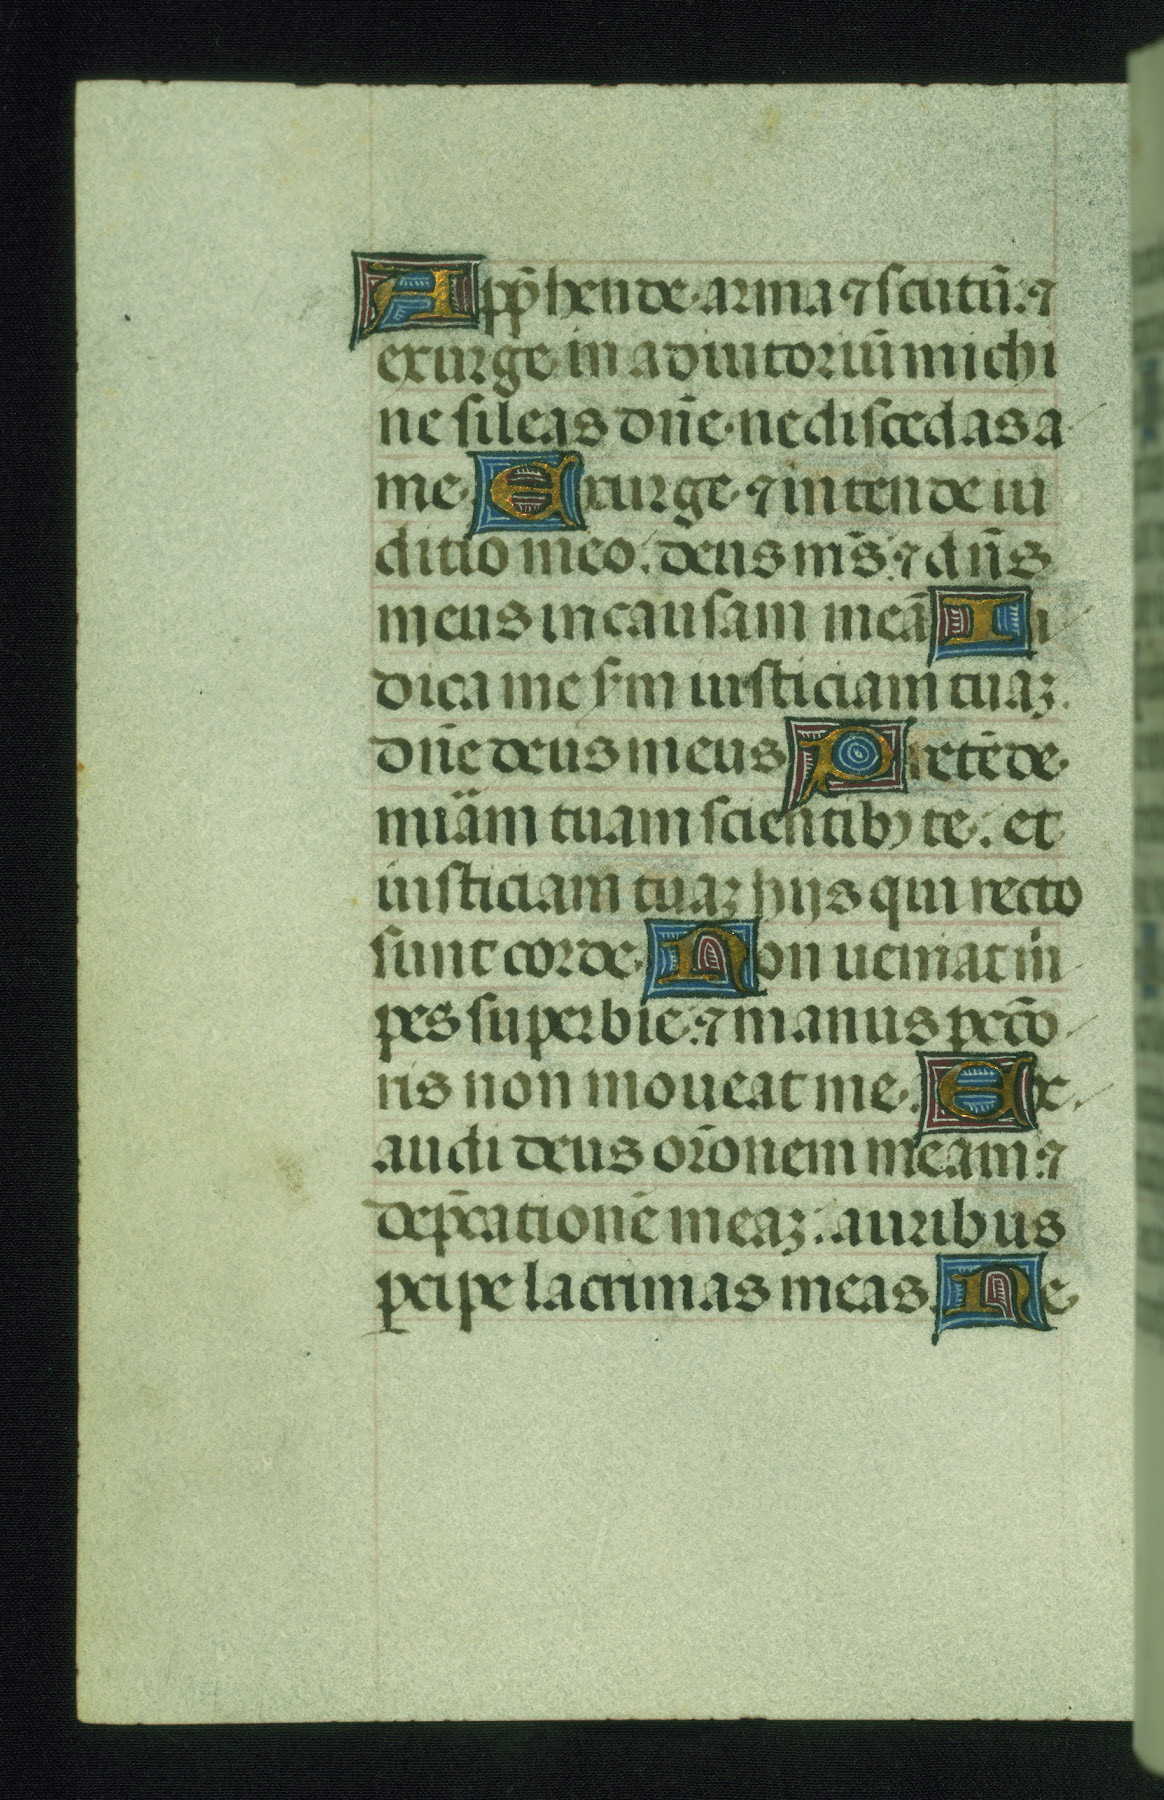 App̄hende arma ⁊ scutū. ⁊
exurge in adiutoriū michi
ne sileas dn̄e. ne discedas a
me. Exurge. ⁊ intende iu
ditio meo. deus m̄s. ⁊ dn̄s
meus in causam meā Iu
dica me sm̄ iusticiam tuaꝫ.
dn̄e deus meus Pretēde.
miām tuam scientibꝰ te. et
iusticiam tuaꝫ hijs qui recto
sunt corde. Non ueniat m̄
pes superbie. ⁊ manus pec̄o
ris non moueat me. Ex.
audi deus or̄onem meam ⁊
dep̄cationē meaꝫ. auribus
ꝑcipe lacrimas meas. Ne